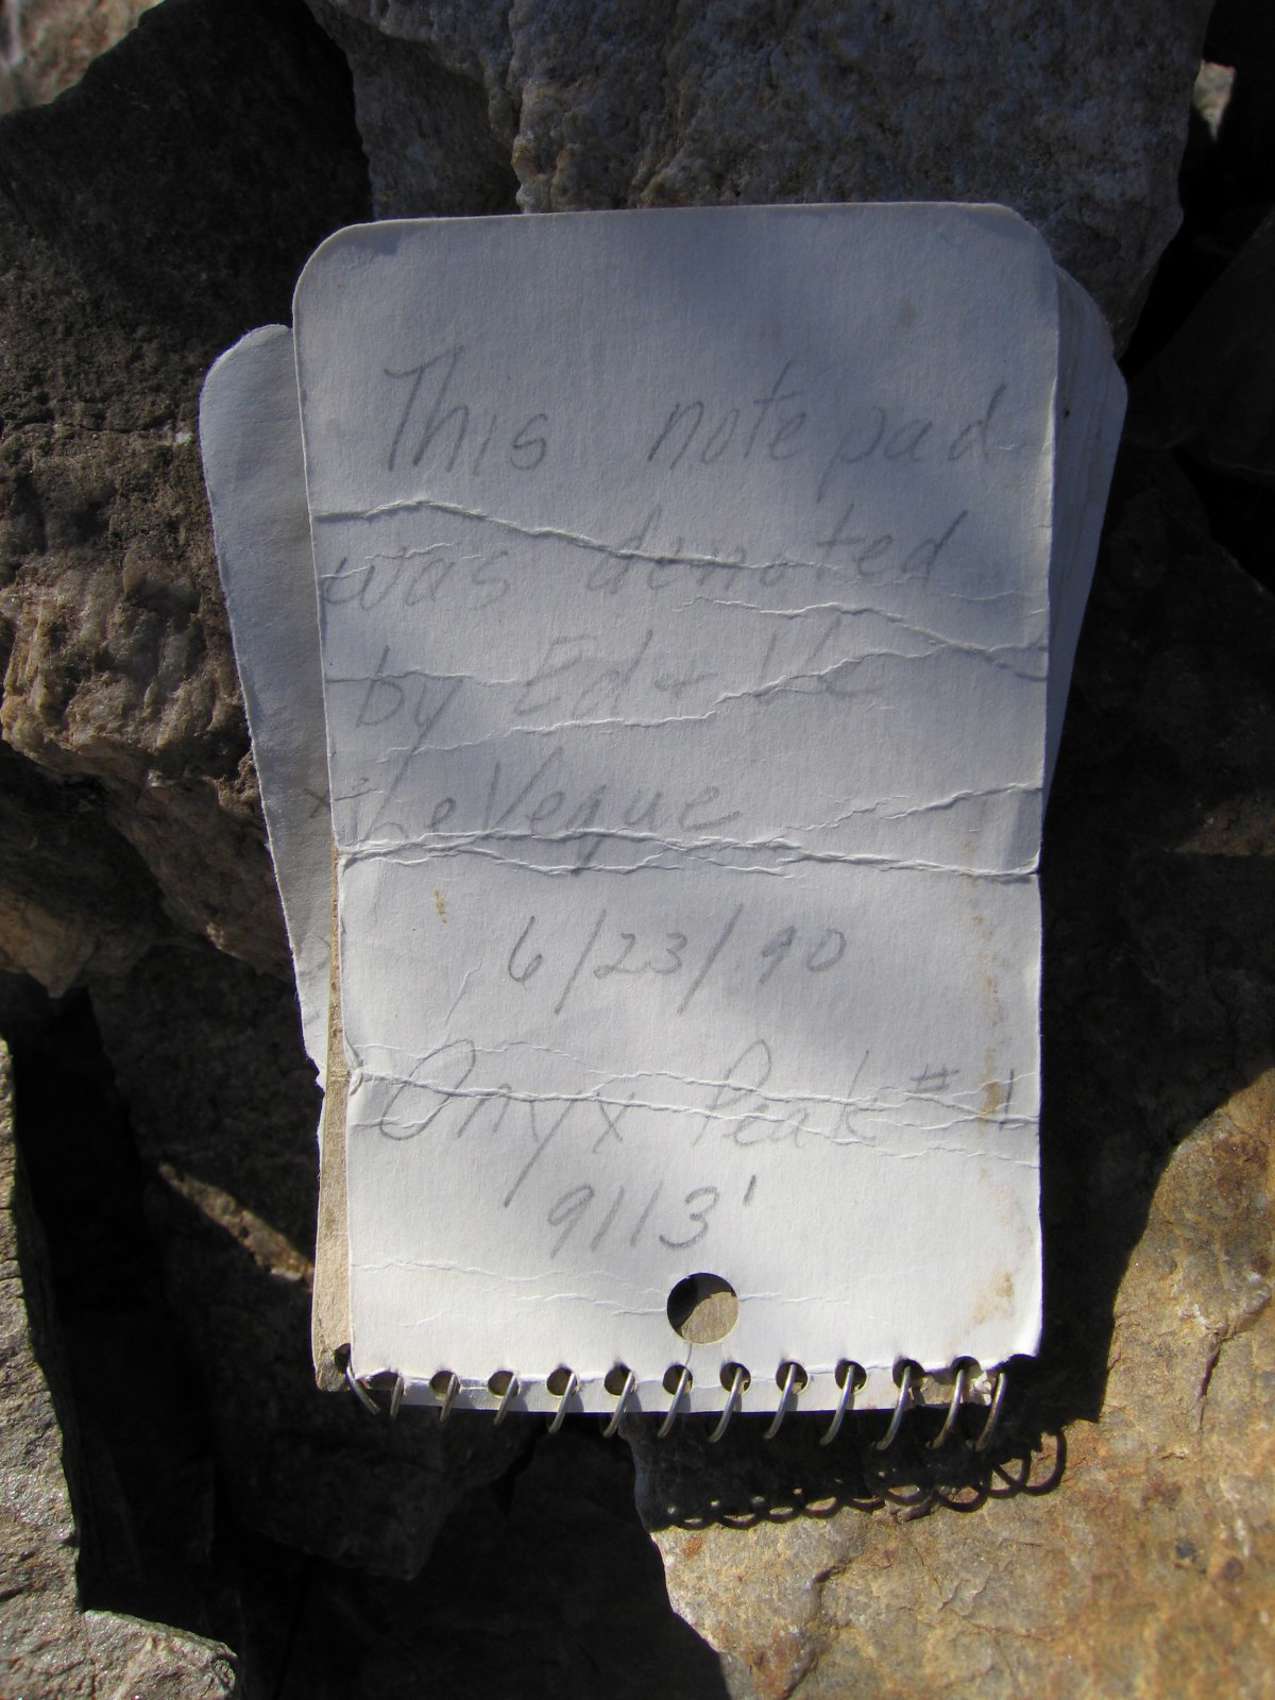 This notepad
was denoted
by Ed +
LeVeque
6/23/90
Onyx Peak #1
9113'